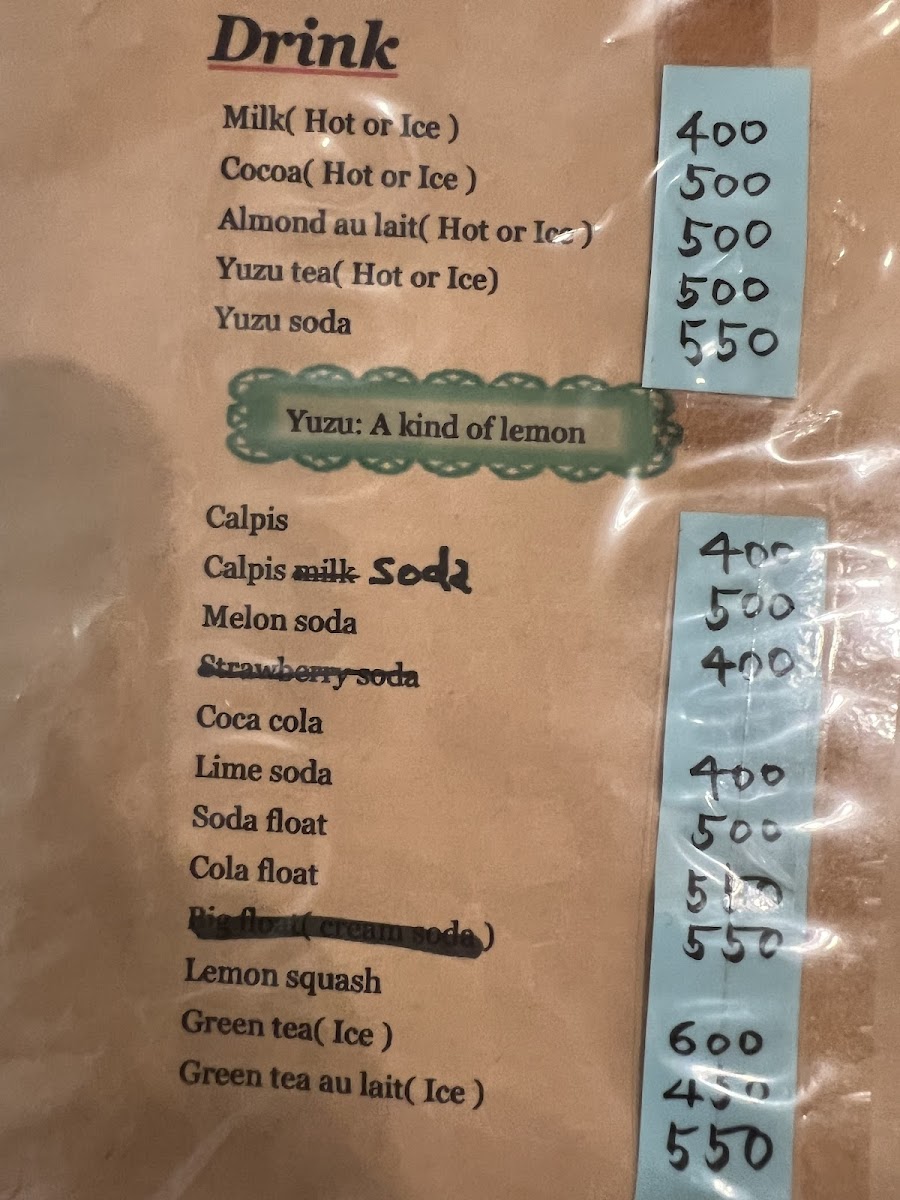 Drink
Milk( Hot or Ice ) 400
Cocoa( Hot or Ice ) 500
Almond au lait( Hot or Ice ) 500
Yuzu tea( Hot or Ice) 500
Yuzu soda 550
Yuzu: A kind of lemon
Calpis 400
Calpis milk soda 500
Melon soda 400
Strawberry soda
Coca cola 400
Lime soda 500
Soda float 550
Cola float 550
Big float( cream soda )
Lemon squash 600
Green tea( Ice ) 450
Green tea au lait( Ice ) 550